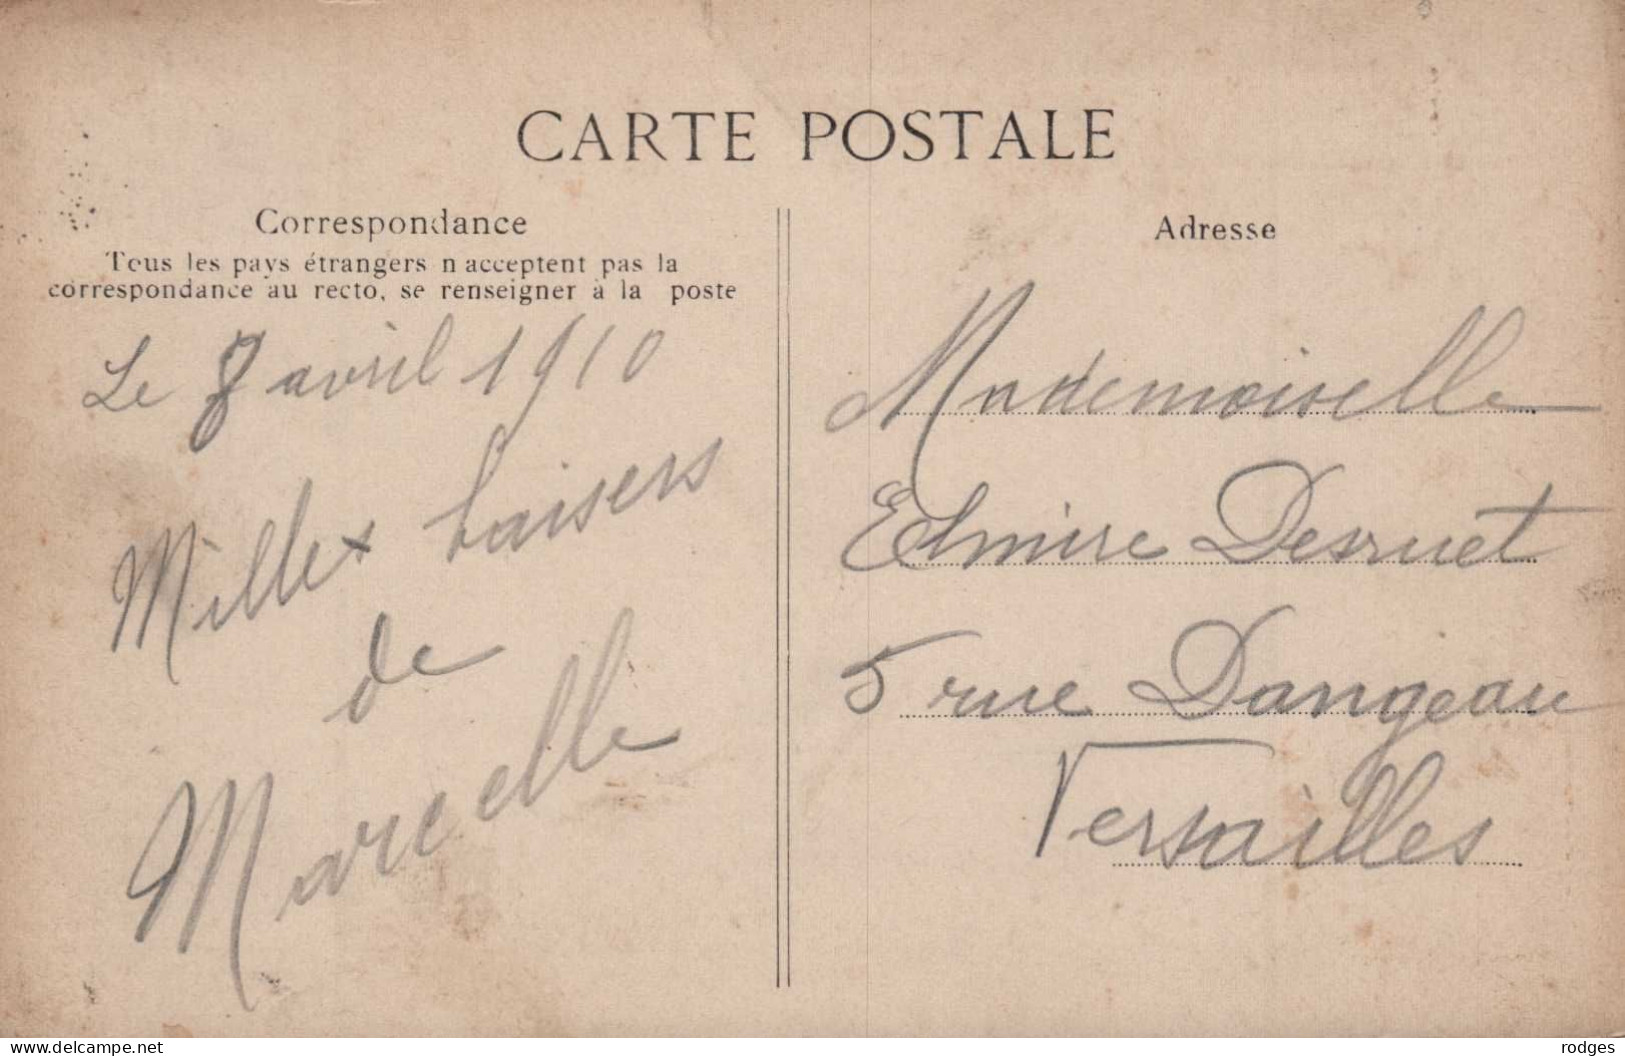 CARTE POSTALE
Correspondance
Tous les pays étrangers n acceptent pas la
correspondance au recto, se renseigner à la poste
Le 8 avril 1910
Milles baisers
de
Marcelle
Adresse
Mademoiselle
Elmire Desruet
5 rue Dangeau
Versailles
www.delcampe.net
rodges